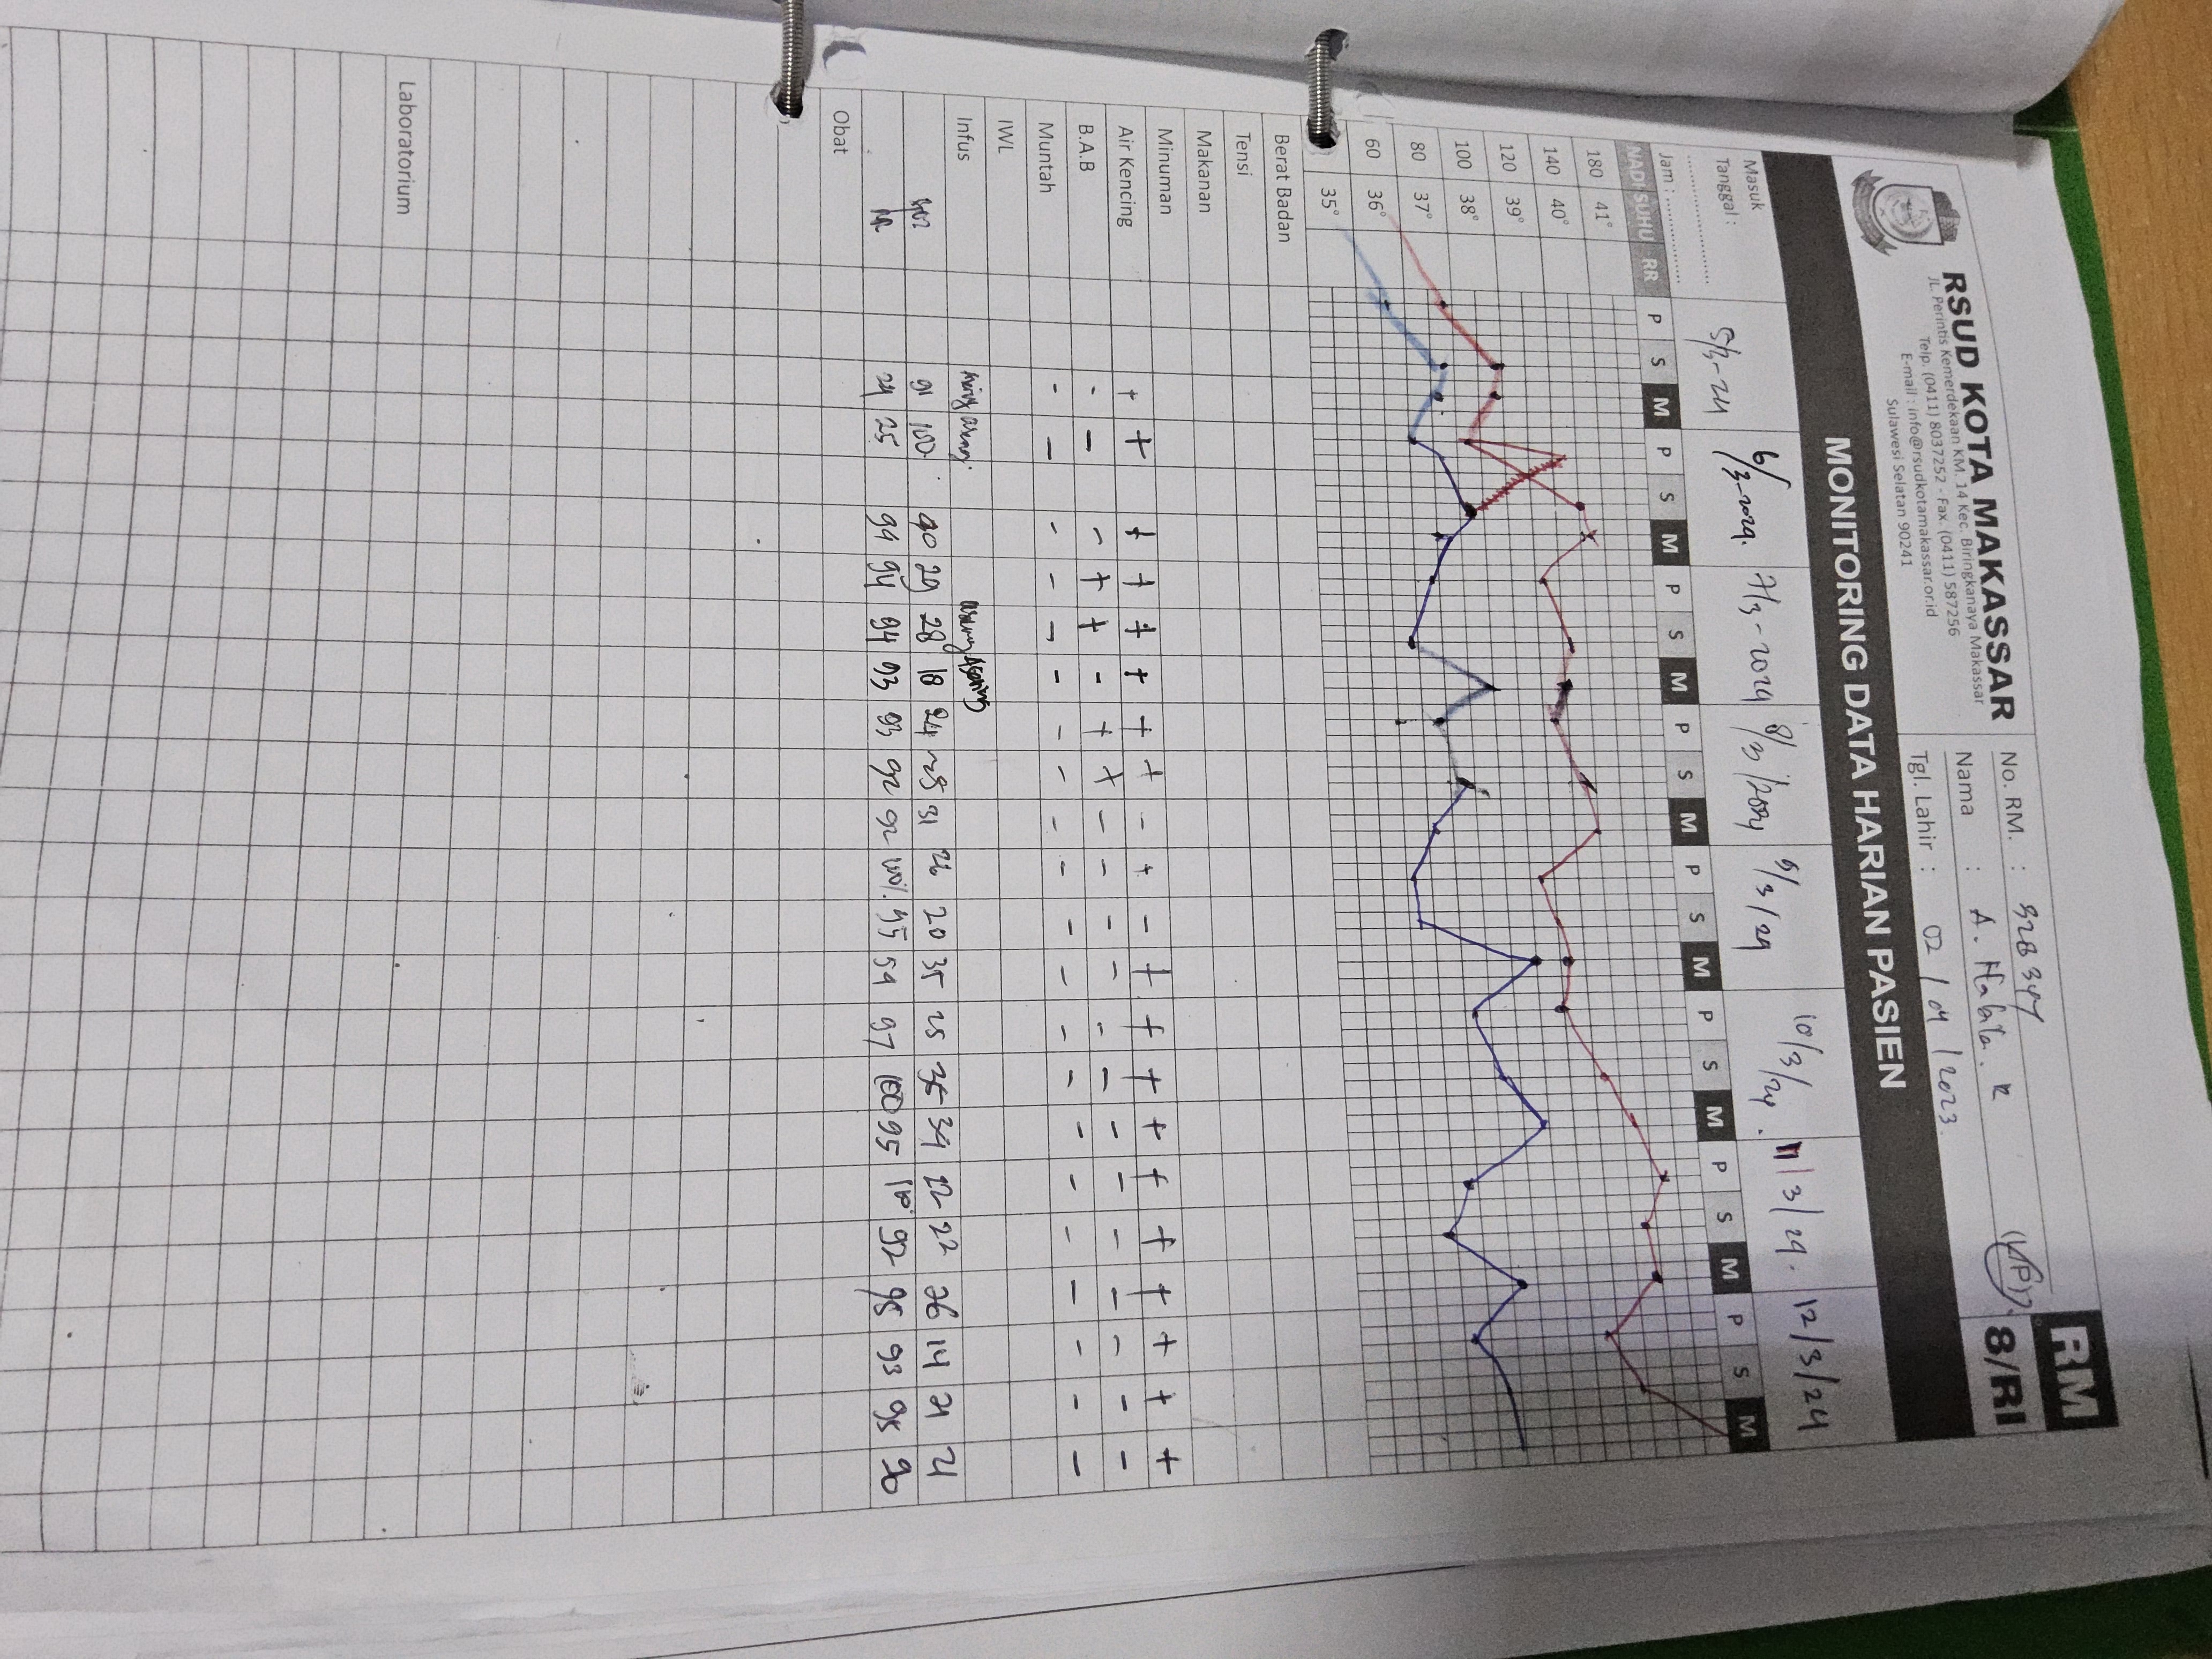 RM
8/RI
RSUD KOTA MAKASSAR
JL. Perintis Kemerdekaan KM. 14 Kec. Biringkanaya Makassar
Telp. (0411) 8037252 - Fax. (0411) 587256
E-mail : info@rsudkotamakassar.or.id
Sulawesi Selatan 90241
No. RM. : 328347
Nama : A. R (L/P)
Tgl. Lahir : 02 / 04 / 2023
MONITORING DATA HARIAN PASIEN
Masuk
Tanggal : ........................
Jam : ................
5/3-24 6/3-2024. 7/3-2024 8/3/2024 9/3/24 10/3/24. 11/3/24. 12/3/24
NADI SUHU RR P S M P S M P S M P S M P S M P S M P S M P S M
180 41°
140 40°
120 39°
100 38°
80 37°
60 36°
35°
Berat Badan
Tensi
Makanan
Minuman
Air Kencing + + + + + + + + - + - + + + + + + + + + +
B.A.B - - - + + - + + - - - - - - - - - - - - -
Muntah - - - - - - - - - - - - - - - - - - - - -
IWL
Infus Asering
91 100 29 28 18 24 25 31 26 20 35 25 35 34 22 22 26 14 21 21
RR 24 25 94 94 94 93 93 92 92 100% 95 97 100 95 92 95 93 95 90
Obat
Laboratorium